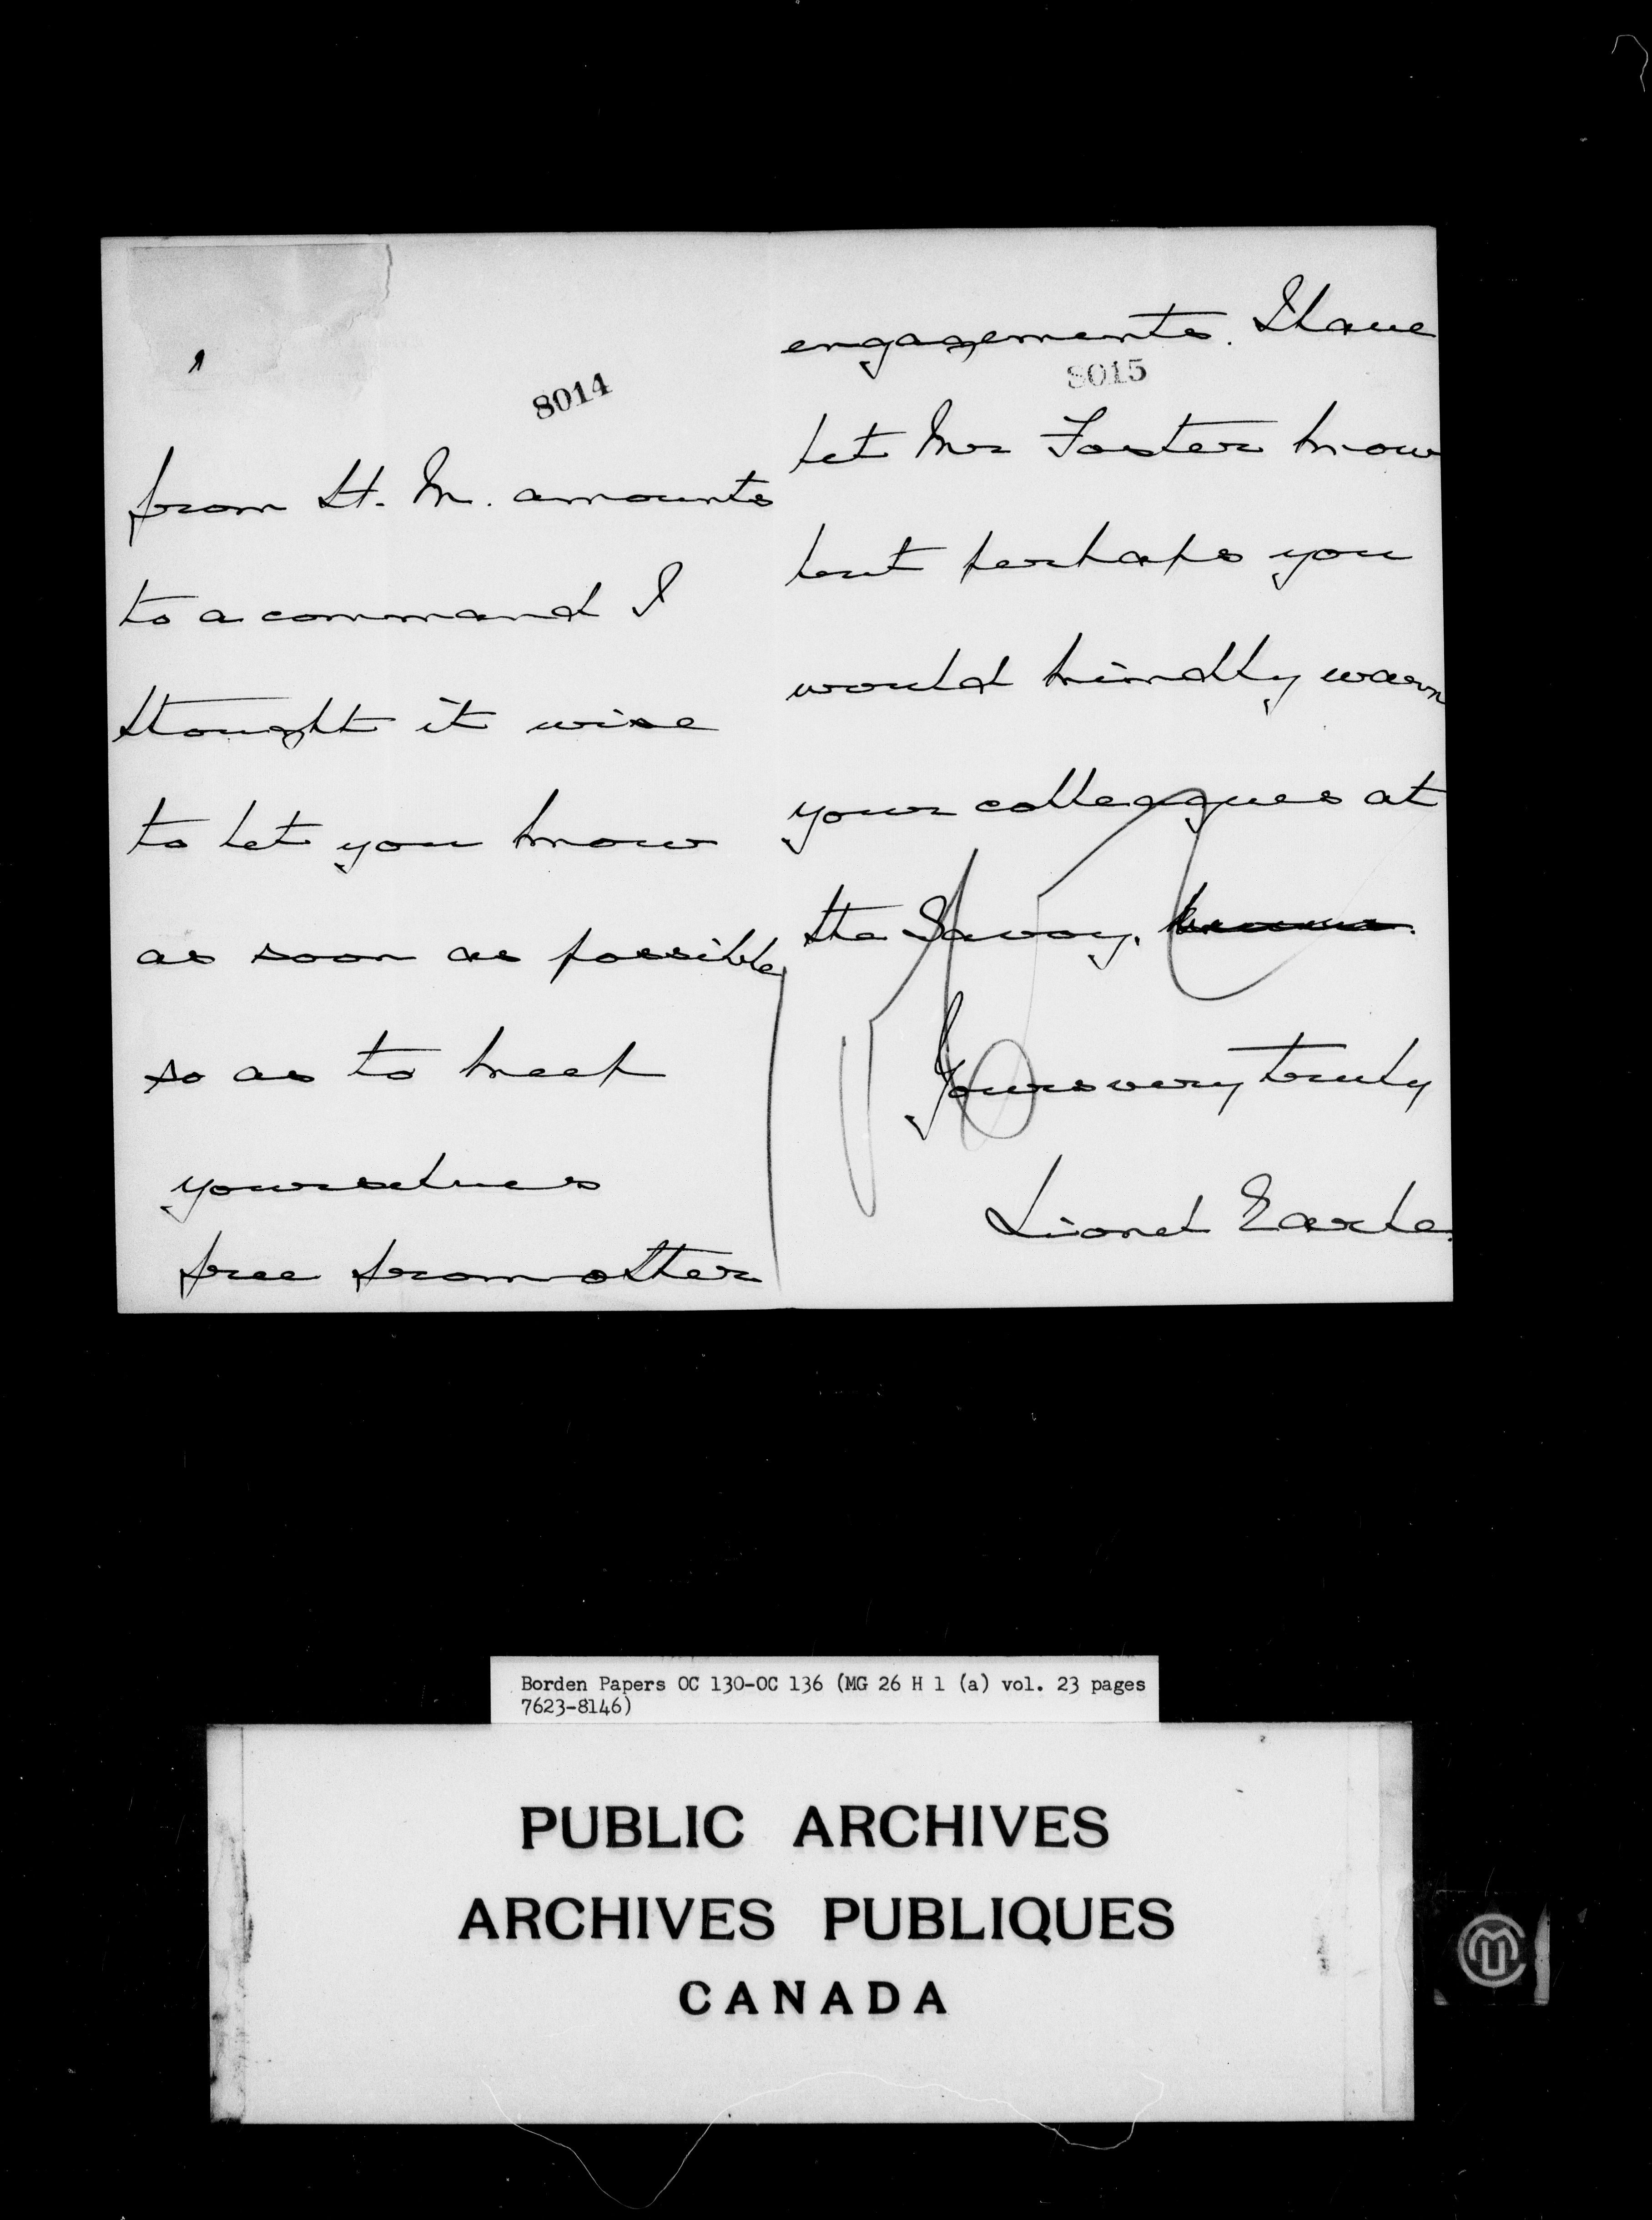 8014
from H. M. amounts
to a command I
thought it wise
to let you know
as soon as possible
so as to keep
yourselves
free from other
8015
engagements. I have
let Mr Foster know
but perhaps you
would kindly warn
your colleagues at
the Savoy.
Yours very truly
Lionel Earle.
Borden Papers OC 130-OC 136 (MG 26 H 1 (a) vol. 23 pages
7623-8146)
PUBLIC ARCHIVES
ARCHIVES PUBLIQUES
CANADA